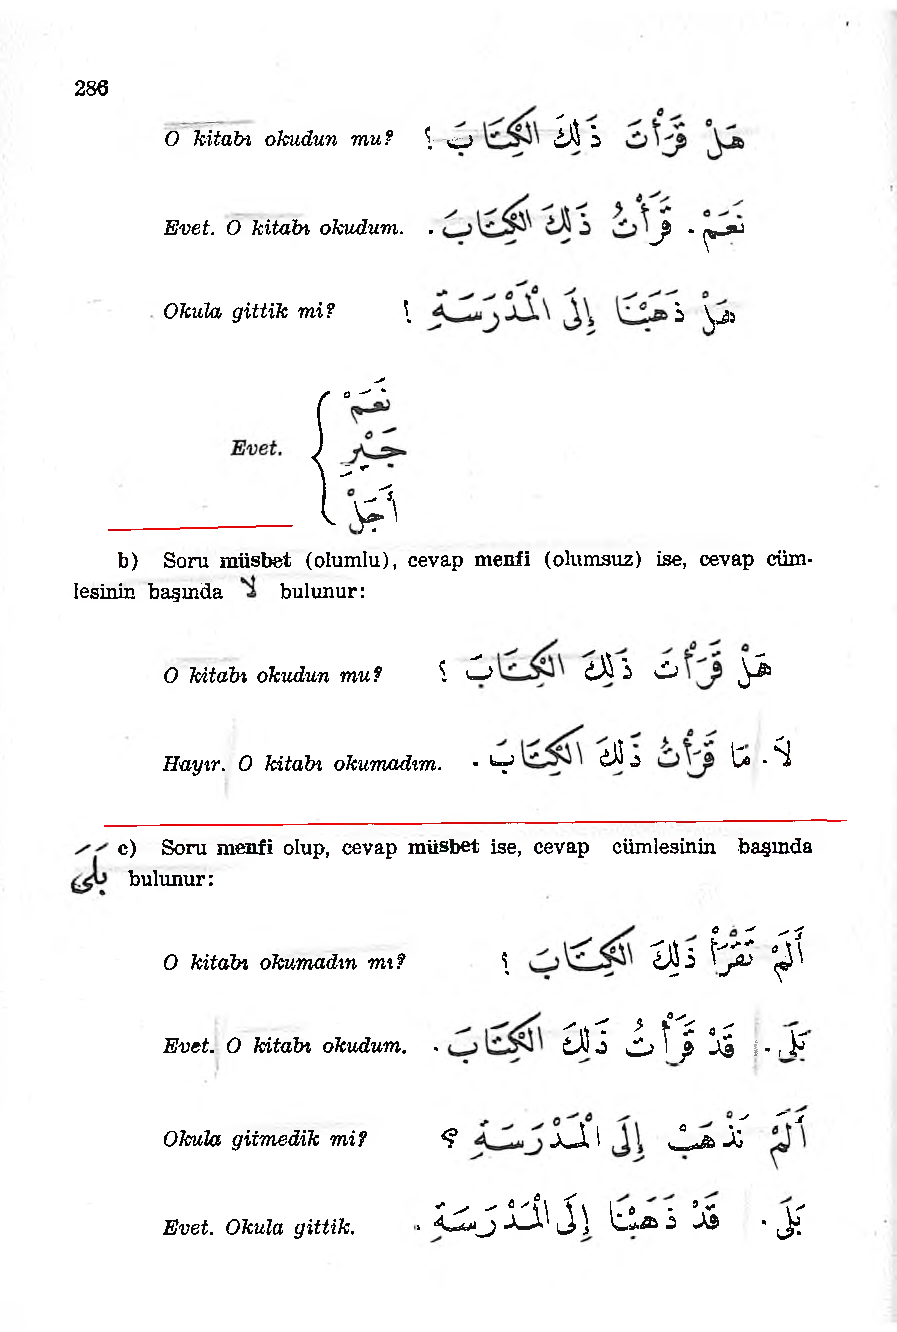 286
O kitabı okudun mu? هَلْ قَرَأْتَ ذٰلِكَ الْكِتَابَ ؟
Evet. O kitabı okudum. نَعَمْ. قَرَأْتُ ذٰلِكَ الْكِتَابَ .
Okula gittik mi? هَلْ ذَهَبْنَا إِلَى الْمَدْرَسَةِ ؟
نَعَمْ
Evet. جَيْرِ
أَجَلْ
b) Soru müsbet (olumlu), cevap menfi (olumsuz) ise, cevap cüm-
lesinin başında لا bulunur:
O kitabı okudun mu? هَلْ قَرَأْتَ ذٰلِكَ الْكِتَابَ ؟
Hayır. O kitabı okumadım. لَا . مَا قَرَأْتُ ذٰلِكَ الْكِتَابَ .
c) Soru menfi olup, cevap müsbet ise, cevap cümlesinin başında
بَلَى bulunur:
O kitabı okumadın mı? أَلَمْ تَقْرَأْ ذٰلِكَ الْكِتَابَ ؟
Evet. O kitabı okudum. بَلَى . قَدْ قَرَأْتُ ذٰلِكَ الْكِتَابَ .
Okula gitmedik mi? أَلَمْ نَذْهَبْ إِلَى الْمَدْرَسَةِ ؟
Evet. Okula gittik. بَلَى . قَدْ ذَهَبْنَا إِلَى الْمَدْرَسَةِ .